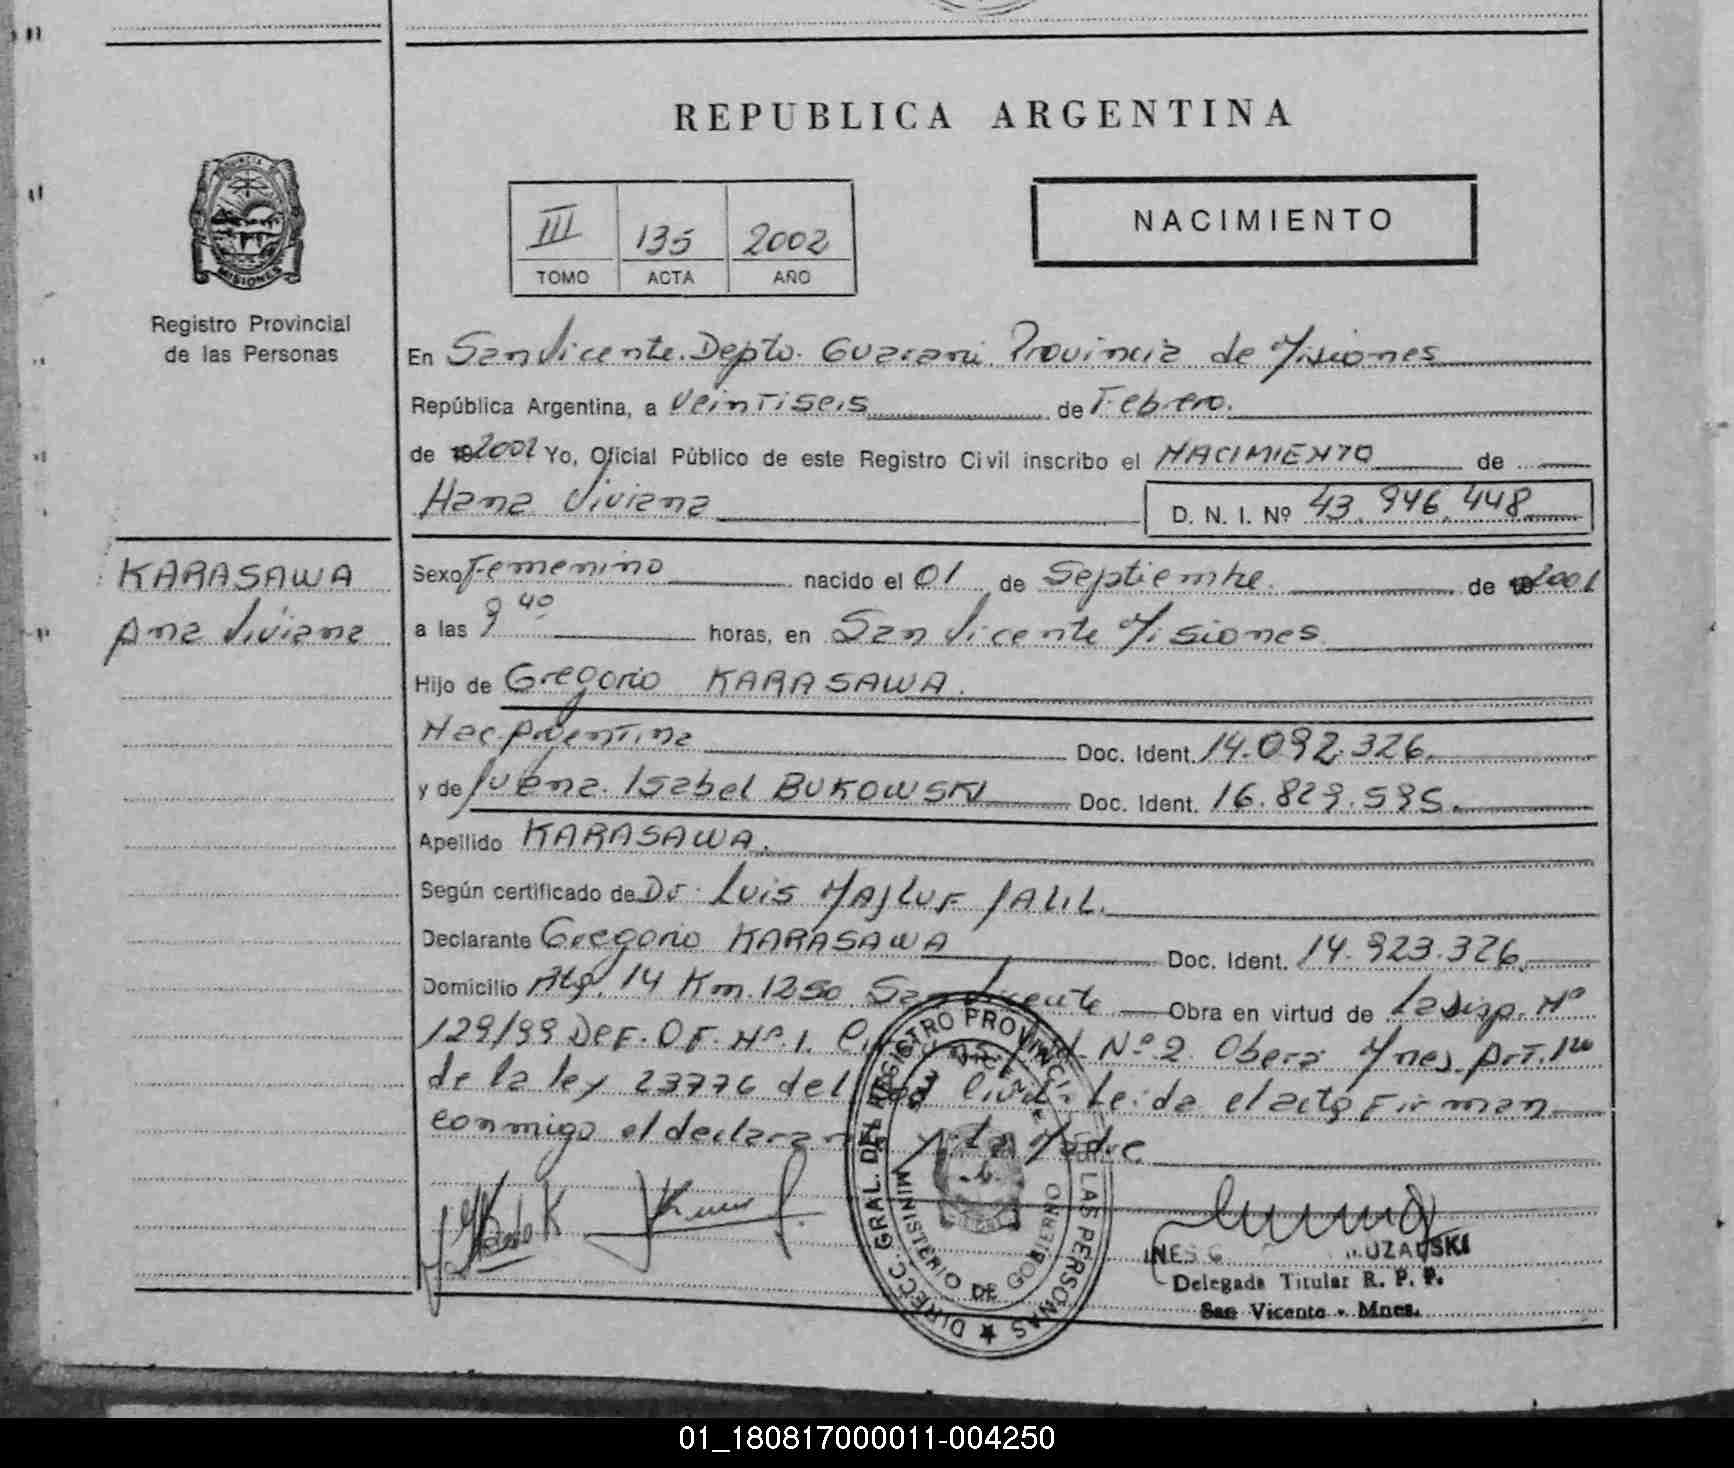 REPUBLICA ARGENTINA
III 135 2002
TOMO ACTA AÑO
NACIMIENTO
PROVINCIA DE MISIONES
Registro Provincial
de las Personas
En San Vicente. Depto. Guarani. Provincia de Misiones
República Argentina, a Veintiseis de Febrero.
de 2002 Yo, Oficial Público de este Registro Civil inscribo el NACIMIENTO de
Hana Viviana
D. N. I. Nº 43.946.448
KARASAWA
Ana Viviana
Sexo Femenino nacido el 01 de Septiembre de 2001
a las 9 40 horas, en San Vicente Misiones
Hijo de Gregorio KARASAWA.
Nac. Argentina Doc. Ident. 14.092.326.
y de Juana Isabel BUKOWSKI Doc. Ident. 16.829.595.
Apellido KARASAWA.
Según certificado de Dr. Luis MAJLUF JALIL.
Declarante Gregorio KARASAWA Doc. Ident. 14.923.326.
Domicilio 14 Km. 1250 San Vicente Obra en virtud de La disp. Nº
129/99 DEF. OF. Nº 1. Nº 2 Obera Mnes. ArT. 1ro
de la ley 23776 del Civil. Leida el acto Firman
conmigo el declarante y la Madre.
DIRECC. GRAL. DEL REGISTRO PROVINCIAL LAS PERSONAS
MINISTERIO DE GOBIERNO
INES G.
Delegada Titular R. P. P.
San Vicente - Mnes.
01_180817000011-004250